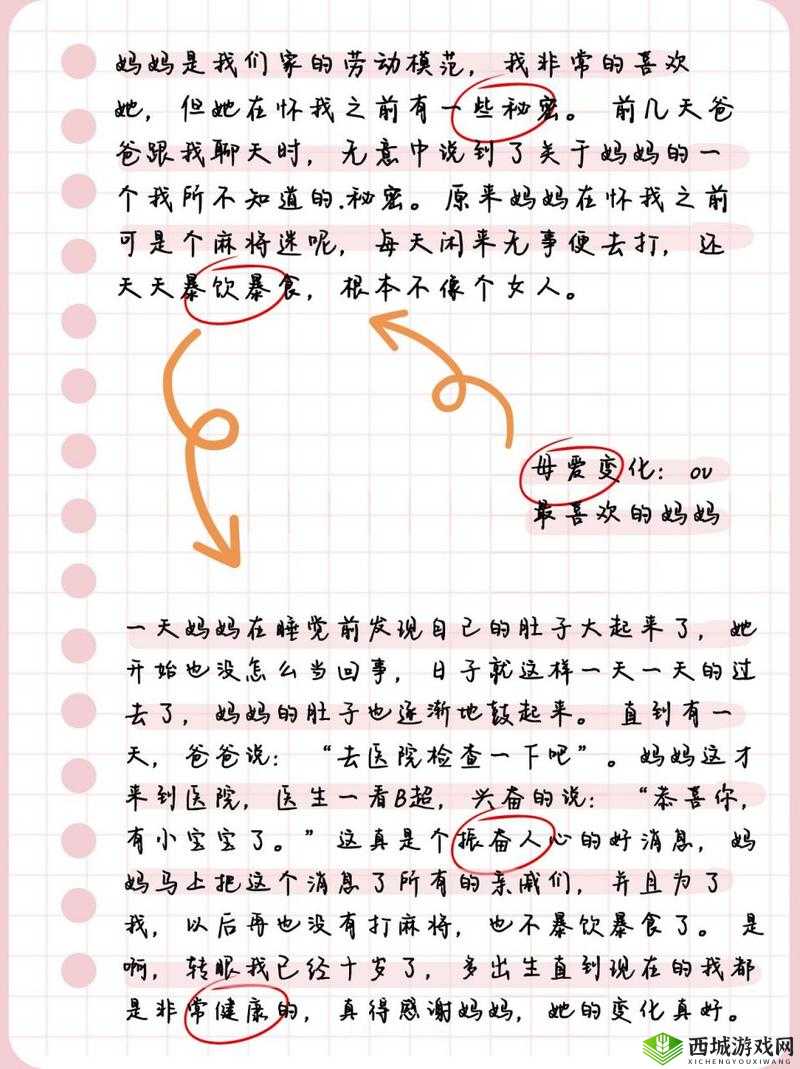 妈妈是我们家的劳动模范，我非常的喜欢
她，但她在怀我之前有一些秘密。前几天爸
爸跟我聊天时，无意中说到了关于妈妈的一
个我所不知道的.秘密。原来妈妈在怀我之前
可是个麻将迷呢，每天闲来无事便去打，还
天天暴饮暴食，根本不像个女人。
母爱变化：ov
最喜欢的妈妈
一天妈妈在睡觉前发现自己的肚子大起来了，她
开始也没怎么当回事，日子就这样一天一天的过
去了，妈妈的肚子也逐渐地鼓起来。直到有一
天，爸爸说：“去医院检查一下吧”。妈妈这才
来到医院，医生一看B超，兴奋的说：“恭喜你，
有小宝宝了。”这真是个振奋人心的好消息，妈
妈马上把这个消息了所有的亲戚们，并且为了
我，以后再也没有打麻将，也不暴饮暴食了。是
啊，转眼我已经十岁了，多出生直到现在的我都
是非常健康的，真得感谢妈妈，她的变化真好。
西城游戏网
XICHENGYOUXIWANG